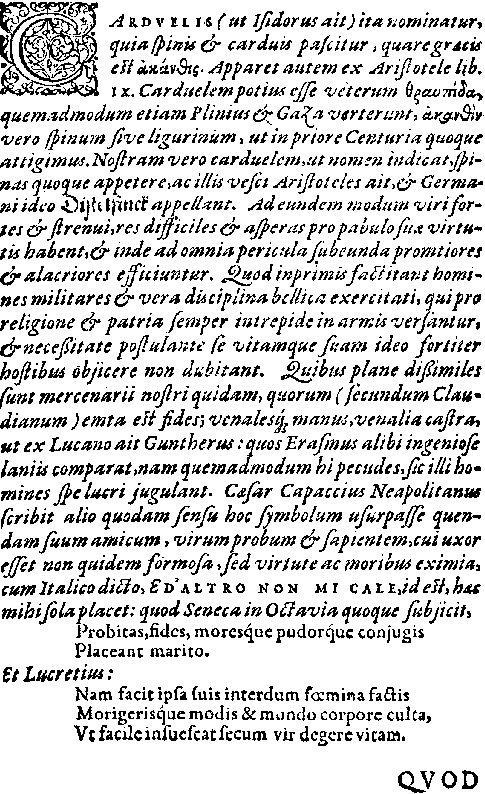 CARDVELIS (ut Iſidorus ait) ita nominatur,
quia ſpinis & carduis paſcitur, quare græcis
eſt ἀκάνθις. Apparet autem ex Ariſtotele lib.
IX. Carduelem potius eſſe veterum θραυπίδα,
quemadmodum etiam Plinius & Gaza verterunt, ἀκανθὶν
vero ſpinum ſive ligurinum, ut in priore Centuria quoque
attigimus. Noſtram vero carduelem, ut nomen indicat, ſpi-
nas quoque appetere, ac illis veſci Ariſtoteles ait, & Germa-
ni ideo Diſtelfinck appellant. Ad eundem modum viri for-
tes & ſtrenui, res difficiles & aſperas pro pabulo ſuæ virtu-
tis habent, & inde ad omnia pericula ſubeunda promtiores
& alacriores efficiuntur. Quod inprimis factitant homi-
nes militares & vera disciplina bellica exercitati, qui pro
religione & patria ſemper intrepide in armis verſantur,
& neceßitate poſtulante ſe vitamque ſuam ideo fortiter
hoſtibus objicere non dubitant. Quibus plane dißimiles
ſunt mercenarii noſtri quidam, quorum (ſecundum Clau-
dianum) emta eſt fides; venalesq́; manus, venalia caſtra,
ut ex Lucano ait Guntherus: quos Eraſmus alibi ingenioſe
laniis comparat, nam quemadmodum hi pecudes, ſic illi ho-
mines ſpe lucri jugulant. Cæſar Capaccius Neapolitanus
ſcribit alio quodam ſenſu hoc ſymbolum uſurpaſſe quen-
dam ſuum amicum, virum probum & ſapientem, cui uxor
eſſet non quidem formoſa, ſed virtute ac moribus eximia,
cum Italico dicto, ED'ALTRO NON MI CALE, id eſt, hæc
mihi ſola placet: quod Seneca in Octavia quoque ſubjicit,
Probitas, fides, moresque pudorque conjugis
Placeant marito.
Et Lucretius:
Nam facit ipſa ſuis interdum fœmina factis
Morigerisque modis & mundo corpore culta,
Vt facile inſueſcat ſecum vir degere vitam.
QVOD